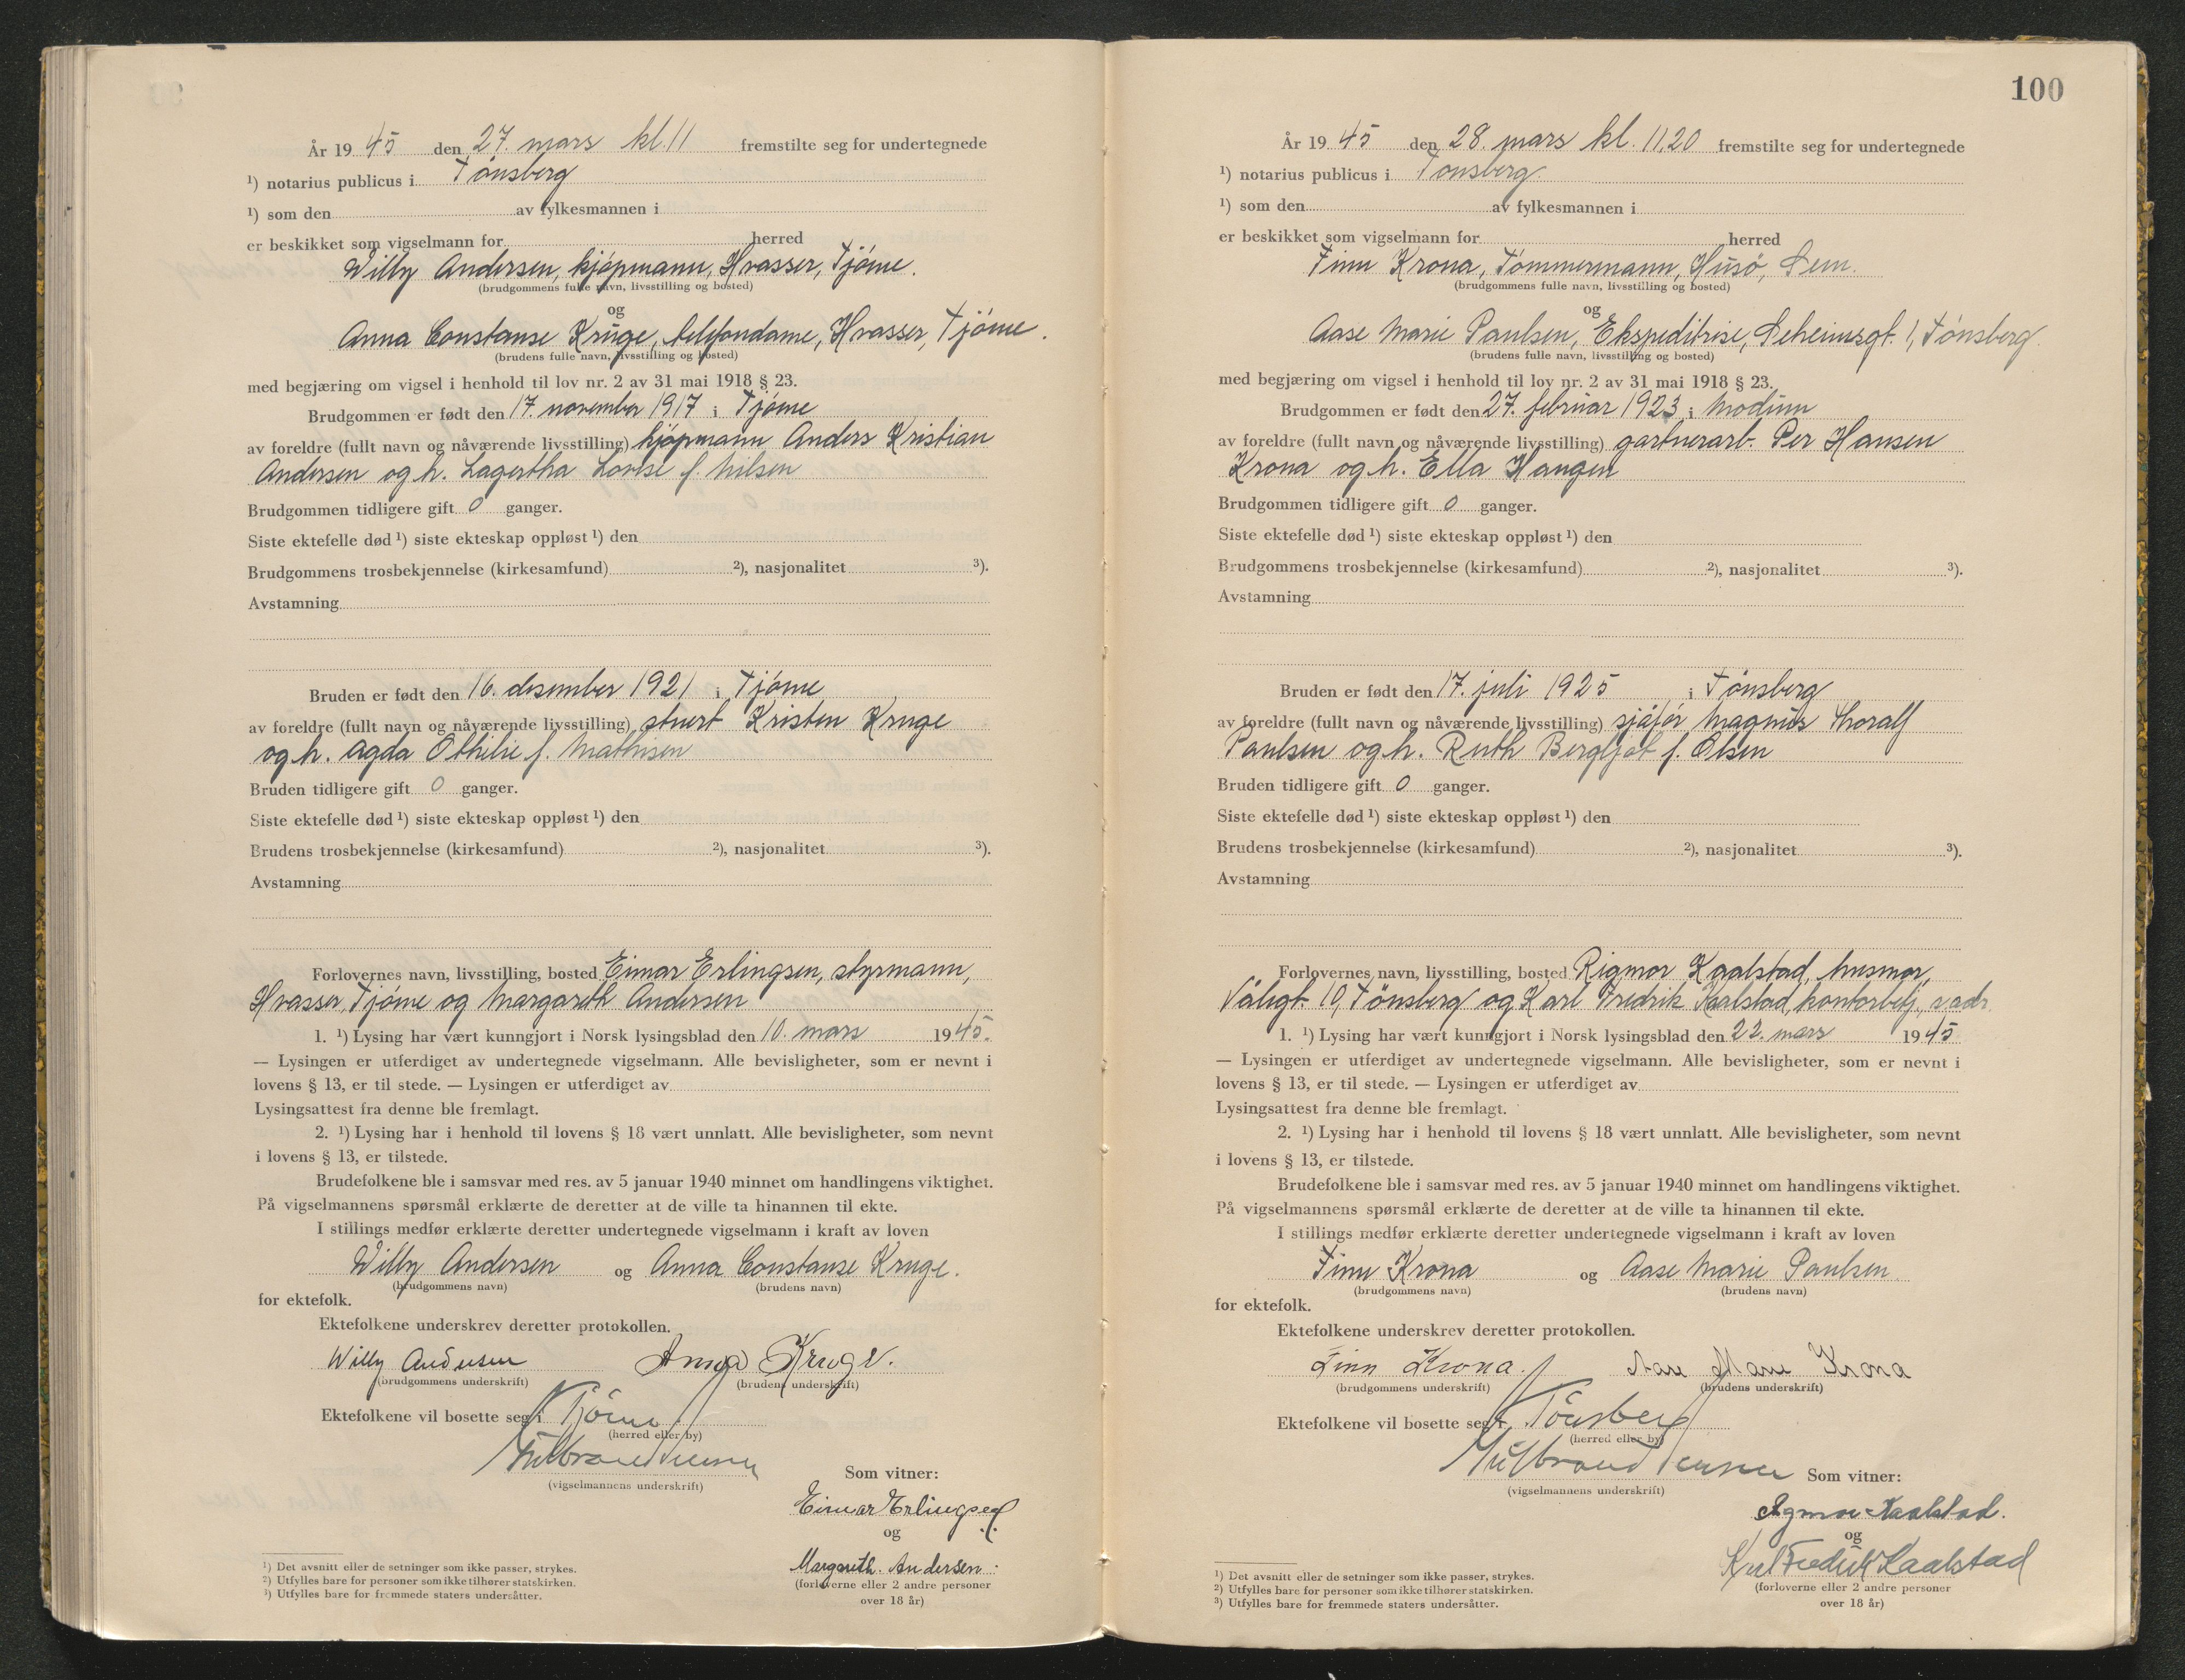 År 19 45 den 27. mars kl. 11 fremstilte seg for undertegnede
¹) notarius publicus i Tönsberg
¹) som den av fylkesmannen i
er beskikket som vigselmann for herred
Willy Andersen, kjöpmann, Hvasser, Tjöme.
(brudgommens fulle navn, livsstilling og bosted)
og
Anna Constanse Kruge, telefondame, Hvasser, Tjöme.
(brudens fulle navn, livsstilling og bosted)
med begjæring om vigsel i henhold til lov nr. 2 av 31 mai 1918 § 23.
Brudgommen er født den 17. november 1917 i Tjöme
av foreldre (fullt navn og nåværende livsstilling) kjöpmann Anders Kristian
Andersen og h. Lagertha Lovise f. Nilsen
Brudgommen tidligere gift 0 ganger.
Siste ektefelle død ¹) siste ekteskap oppløst ¹) den
Brudgommens trosbekjennelse (kirkesamfund) ²), nasjonalitet ³).
Avstamning
Bruden er født den 16. desember 1921 i Tjöme
av foreldre (fullt navn og nåværende livsstilling) stuert Kristen Kruge
og h. Agda Othilie f. Mathisen
Bruden tidligere gift 0 ganger.
Siste ektefelle død ¹) siste ekteskap oppløst ¹) den
Brudens trosbekjennelse (kirkesamfund) ²), nasjonalitet ³).
Avstamning
Forlovernes navn, livsstilling, bosted Eimar Erlingsen, styrmann,
Hvasser, Tjöme og Margareth Andersen
1. ¹) Lysing har vært kunngjort i Norsk lysingsblad den 10. mars 1945.
— Lysingen er utferdiget av undertegnede vigselmann. Alle bevisligheter, som er nevnt i
lovens § 13, er til stede. — Lysingen er utferdiget av
Lysingsattest fra denne ble fremlagt.
2. ¹) Lysing har i henhold til lovens § 18 vært unnlatt. Alle bevisligheter, som nevnt
i lovens § 13, er tilstede.
Brudefolkene ble i samsvar med res. av 5 januar 1940 minnet om handlingens viktighet.
På vigselmannens spørsmål erklærte de deretter at de ville ta hinannen til ekte.
I stillings medfør erklærte deretter undertegnede vigselmann i kraft av loven
Willy Andersen og Anna Constanse Kruge.
(brudgommens navn) (brudens navn)
for ektefolk.
Ektefolkene underskrev deretter protokollen.
Willy Andersen Anna Kruge.
(brudgommens underskrift) (brudens underskrift)
Ektefolkene vil bosette seg i Tjöme
(herred eller by)
(vigselmannens underskrift)
Som vitner:
Eimar Erlingsen
og
Margareth. Andersen
(forloverne eller 2 andre personer
over 18 år)
¹) Det avsnitt eller de setninger som ikke passer, strykes.
²) Utfylles bare for personer som ikke tilhører statskirken.
³) Utfylles bare for fremmede staters undersåtter.
100
År 19 45 den 28. mars kl. 11.20 fremstilte seg for undertegnede
¹) notarius publicus i Tönsberg
¹) som den av fylkesmannen i
er beskikket som vigselmann for herred
Finn Krona, Tömmermann, Husö, Sem.
(brudgommens fulle navn, livsstilling og bosted)
og
Aase Marie Paulsen, Ekspeditrise, Seheimsgt. 1, Tönsberg
(brudens fulle navn, livsstilling og bosted)
med begjæring om vigsel i henhold til lov nr. 2 av 31 mai 1918 § 23.
Brudgommen er født den 27. februar 1923 i Modum
av foreldre (fullt navn og nåværende livsstilling) gartnerarb. Per Hansen
Krona og h. Ella Haugen
Brudgommen tidligere gift 0 ganger.
Siste ektefelle død ¹) siste ekteskap oppløst ¹) den
Brudgommens trosbekjennelse (kirkesamfund) ²), nasjonalitet ³).
Avstamning
Bruden er født den 17. juli 1925 i Tönsberg
av foreldre (fullt navn og nåværende livsstilling) sjåför Magnus Thoralf
Paulsen og h. Ruth Bergljot f. Olsen
Bruden tidligere gift 0 ganger.
Siste ektefelle død ¹) siste ekteskap oppløst ¹) den
Brudens trosbekjennelse (kirkesamfund) ²), nasjonalitet ³).
Avstamning
Forlovernes navn, livsstilling, bosted Rigmor Kaalstad, husmor,
10, Tönsberg og Karl Fredrik Kaalstad, kontorbetj.,
1. ¹) Lysing har vært kunngjort i Norsk lysingsblad den 22. mars 1945
— Lysingen er utferdiget av undertegnede vigselmann. Alle bevisligheter, som er nevnt i
lovens § 13, er til stede. — Lysingen er utferdiget av
Lysingsattest fra denne ble fremlagt.
2. ¹) Lysing har i henhold til lovens § 18 vært unnlatt. Alle bevisligheter, som nevnt
i lovens § 13, er tilstede.
Brudefolkene ble i samsvar med res. av 5 januar 1940 minnet om handlingens viktighet.
På vigselmannens spørsmål erklærte de deretter at de ville ta hinannen til ekte.
I stillings medfør erklærte deretter undertegnede vigselmann i kraft av loven
Finn Krona og Aase Marie Paulsen
(brudgommens navn) (brudens navn)
for ektefolk.
Ektefolkene underskrev deretter protokollen.
Finn Krona. Aase Marie Krona
(brudgommens underskrift) (brudens underskrift)
Ektefolkene vil bosette seg i Tönsberg
(herred eller by)
(vigselmannens underskrift)
Som vitner:
Rigmor Kaalstad.
og
Karl Fredrik Kaalstad
(forloverne eller 2 andre personer
over 18 år)
¹) Det avsnitt eller de setninger som ikke passer, strykes.
²) Utfylles bare for personer som ikke tilhører statskirken.
³) Utfylles bare for fremmede staters undersåtter.